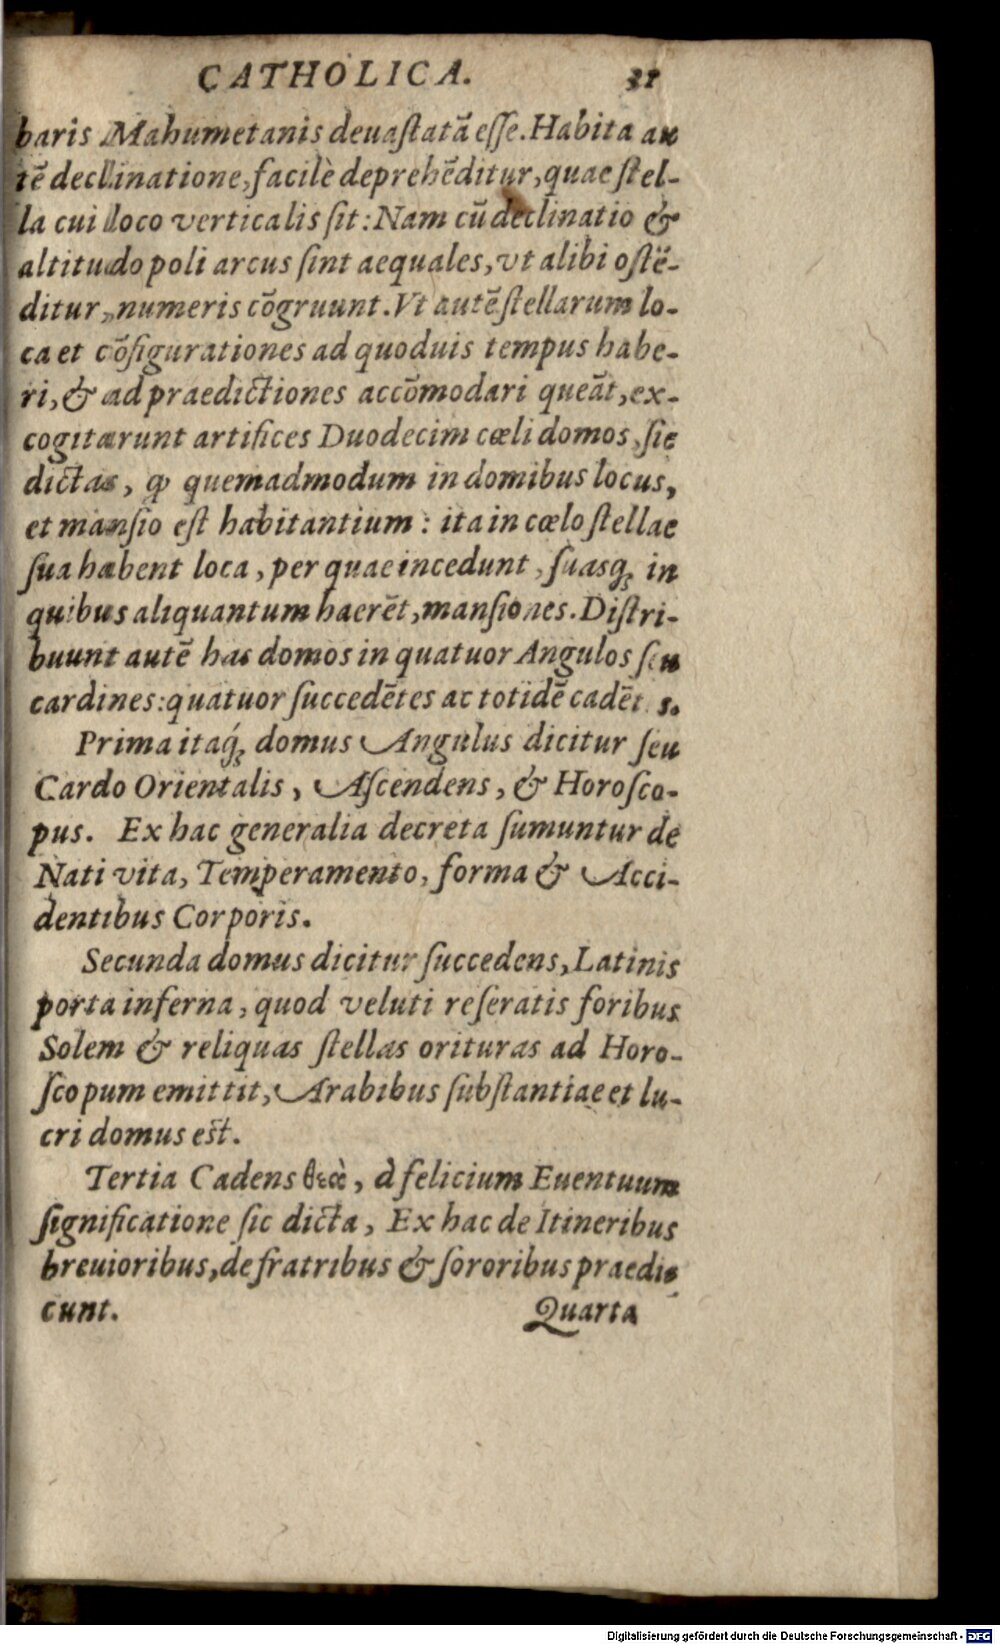 CATHOLICA. 31
baris Mahumetanis deuaſtatā eſſe. Habita au
tē declinatione, facilè deprehēditur, quae ſtel-
la cui loco verticalis ſit: Nam cū declinatio &
altitudo poli arcus ſint aequales, vt alibi oſtē-
ditur, numeris cōgruunt. Vt autē ſtellarum lo-
ca et cōfigurationes ad quoduis tempus habe-
ri, & ad praedictiones accōmodari queāt, ex-
cogitarunt artifices Duodecim cœli domos, ſic
dictas, ꝙ quemadmodum in domibus locus,
et manſio eſt habitantium : ita in cœlo ſtellae
ſua habent loca, per quae incedunt, ſuasq́ꝫ in
quibus aliquantum haerēt, manſiones. Diſtri-
buunt autē has domos in quatuor Angulos ſeu
cardines: quatuor ſuccedētes ac totidē cadētes.
Prima itaq́ꝫ domus Angulus dicitur ſeu
Cardo Orientalis, Aſcendens, & Horoſco-
pus. Ex hac generalia decreta ſumuntur de
Nati vita, Temperamento, forma & Acci-
dentibus Corporis.
Secunda domus dicitur ſuccedens, Latinis
porta inferna, quod veluti reſeratis foribus
Solem & reliquas ſtellas orituras ad Horo-
ſcopum emittit, Arabibus ſubſtantiae et lu-
cri domus eſt.
Tertia Cadens θεὰ, à felicium Euentuum
ſignificatione ſic dicta, Ex hac de Itineribus
breuioribus, de fratribus & ſororibus praedi-
cunt. Quarta
Digitalisierung gefördert durch die Deutsche Forschungsgemeinschaft - DFG